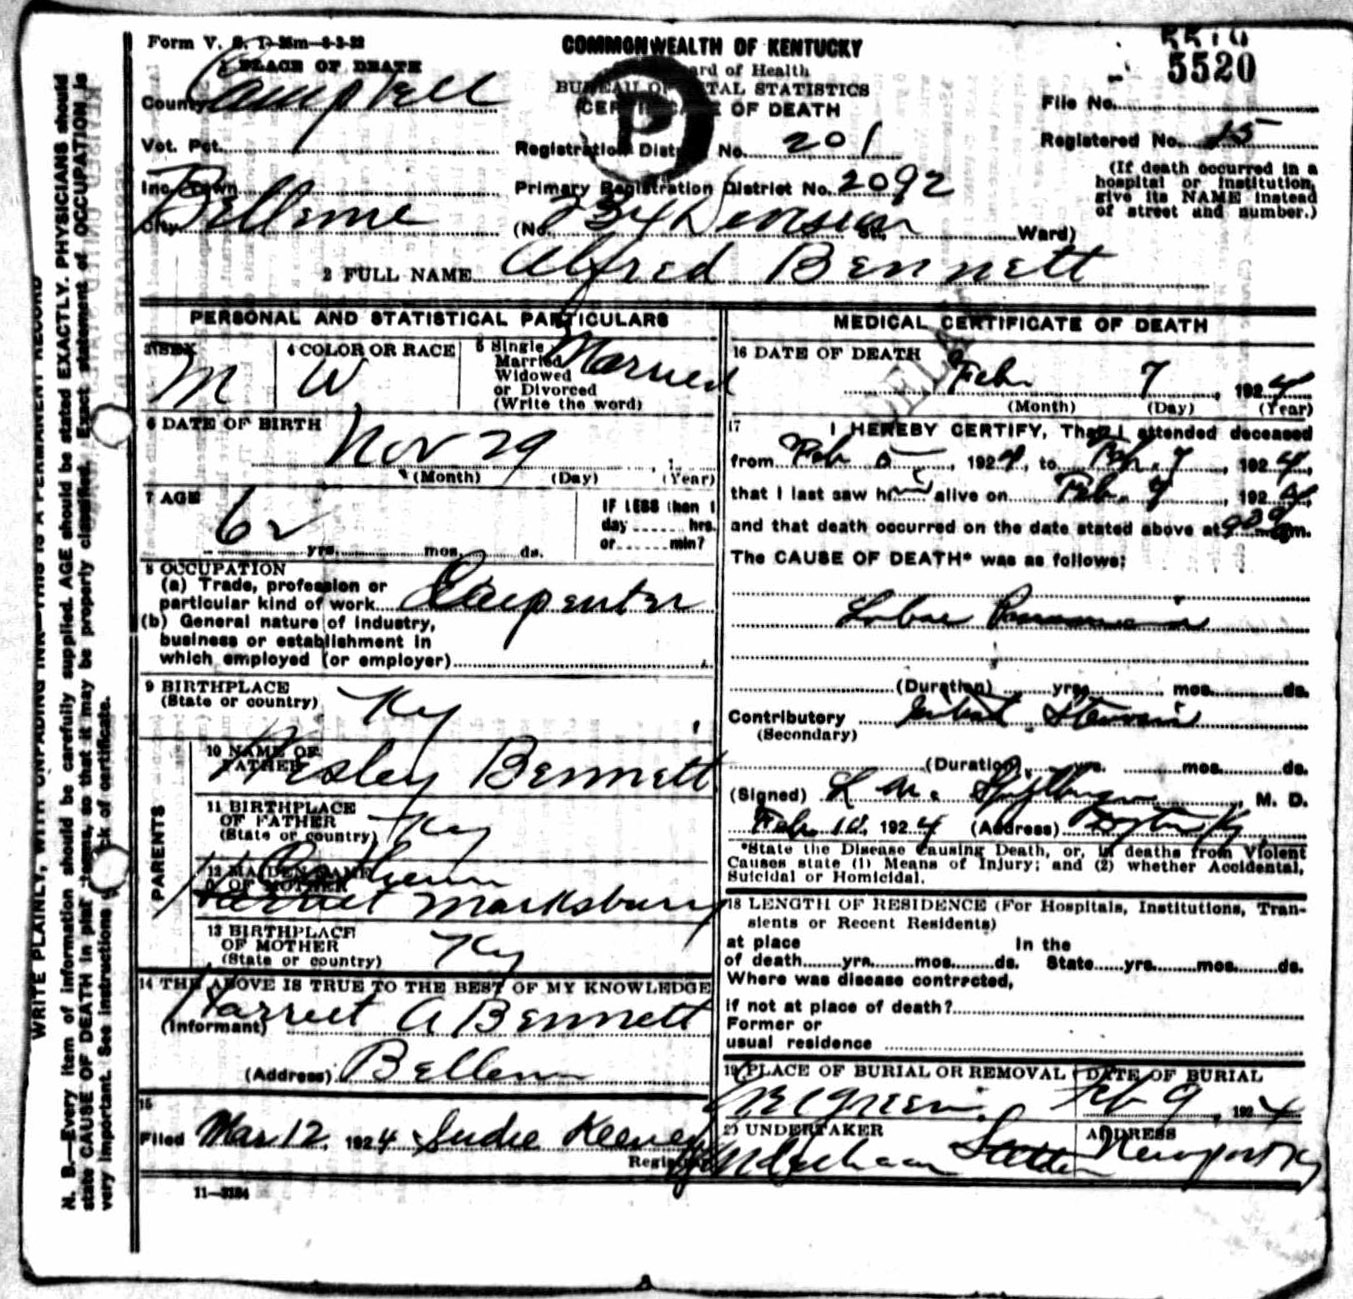 Form V. S. 1-35m-6-3-22
COMMONWEALTH OF KENTUCKY
5520
5520
1 PLACE OF DEATH
Board of Health
BUREAU OF VITAL STATISTICS
CERTIFICATE OF DEATH
P
County Campbell
File No.
Vot. Pct.
Registration District No. 201
Registered No. 15
(If death occurred in a hospital or institution, give its NAME instead of street and number.)
Inc. Town
Primary Registration District No. 2092
City Bellevue
(No. 234 Division St. Ward)
2 FULL NAME Alfred Bennett
PERSONAL AND STATISTICAL PARTICULARS
3 SEX M
4 COLOR OR RACE W
5 Single
Married
Widowed
or Divorced
(Write the word)
Married
6 DATE OF BIRTH
Nov 29
(Month) (Day) (Year)
7 AGE
62
yrs. mos. ds.
IF LESS than 1
day hrs.
or min?
8 OCCUPATION
(a) Trade, profession or
particular kind of work Carpenter
(b) General nature of industry,
business or establishment in
which employed (or employer)
9 BIRTHPLACE
(State or country) Ky
PARENTS
10 NAME OF
FATHER Wesley Bennett
11 BIRTHPLACE
OF FATHER
(State or country) Ky
12 MAIDEN NAME
OF MOTHER
Harriet Marksbury
13 BIRTHPLACE
OF MOTHER
(State or country) Ky
14 THE ABOVE IS TRUE TO THE BEST OF MY KNOWLEDGE
(Informant) Harriet A Bennett
(Address) Bellevue
15
Filed Mar 12, 1924 Sudie Keeney
Registrar
11-3184
MEDICAL CERTIFICATE OF DEATH
16 DATE OF DEATH
Feb. 7, 1924
(Month) (Day) (Year)
17 I HEREBY CERTIFY, That I attended deceased
from Feb 5, 1924, to Feb. 7, 1924,
that I last saw him alive on Feb. 7, 1924,
and that death occurred on the date stated above at m.
The CAUSE OF DEATH* was as follows:
Lobar Pneumonia
(Duration) yrs. mos. ds.
Contributory Mitral Stenosis
(Secondary)
(Duration) yrs. mos. ds.
(Signed) L. M. M. D.
Feb. 10, 1924 (Address) Dayton Ky
*State the Disease Causing Death, or, in deaths from Violent
Causes state (1) Means of Injury; and (2) whether Accidental,
Suicidal or Homicidal.
18 LENGTH OF RESIDENCE (For Hospitals, Institutions, Tran-
sients or Recent Residents)
at place In the
of death yrs. mos. ds. State yrs. mos. ds.
Where was disease contracted,
if not at place of death?
Former or
usual residence
19 PLACE OF BURIAL OR REMOVAL DATE OF BURIAL
Evergreen Feb 9, 1924
20 UNDERTAKER ADDRESS
Newport Ky
WRITE PLAINLY, WITH UNFADING INK—THIS IS A PERMANENT RECORD
N. B.—Every item of information should be carefully supplied. AGE should be stated EXACTLY. PHYSICIANS should
state CAUSE OF DEATH in plain terms, so that it may be properly classified. Exact statement of OCCUPATION is
very important. See instructions on back of certificate.